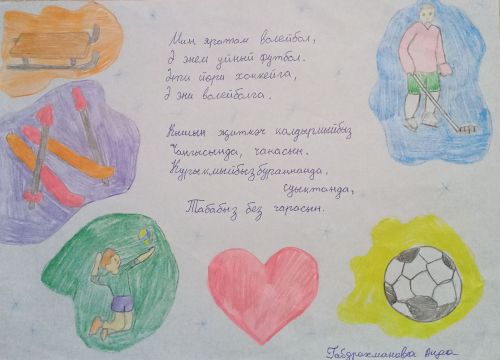 Мин яратам волейбол,
Ә энем уйный футбол.
Әти йөри хоккейга,
Ә әни волейболга.
Кышын җиткәч калдырмыйбыз
Чаңгысында, чанасын.
Курыкмыйбыз бураннанда,
суыктанда,
Табабыз без чарасын.
Габдрахманова Анра